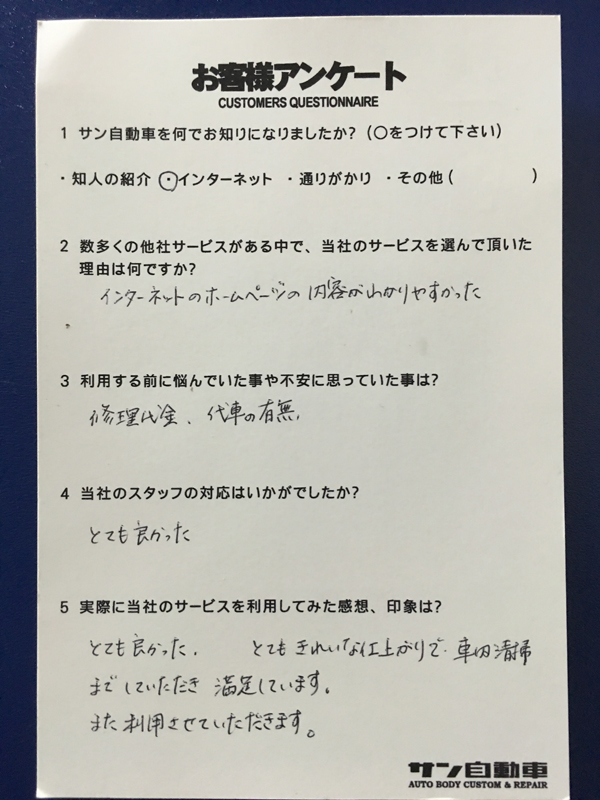 お客様アンケート
CUSTOMERS QUESTIONNAIRE
1 サン自動車を何でお知りになりましたか?(○をつけて下さい)
・知人の紹介 ・インターネット ・通りがかり ・その他( )
2 数多くの他社サービスがある中で、当社のサービスを選んで頂いた
理由は何ですか?
インターネットのホームページの内容がわかりやすかった
3 利用する前に悩んでいた事や不安に思っていた事は?
修理代金、代車の有無、
4 当社のスタッフの対応はいかがでしたか?
とても良かった
5 実際に当社のサービスを利用してみた感想、印象は?
とても良かった. とてもきれいな仕上がりで、車内清掃
までしていただき 満足しています。
また利用させていただきます。
サン自動車
AUTO BODY CUSTOM & REPAIR